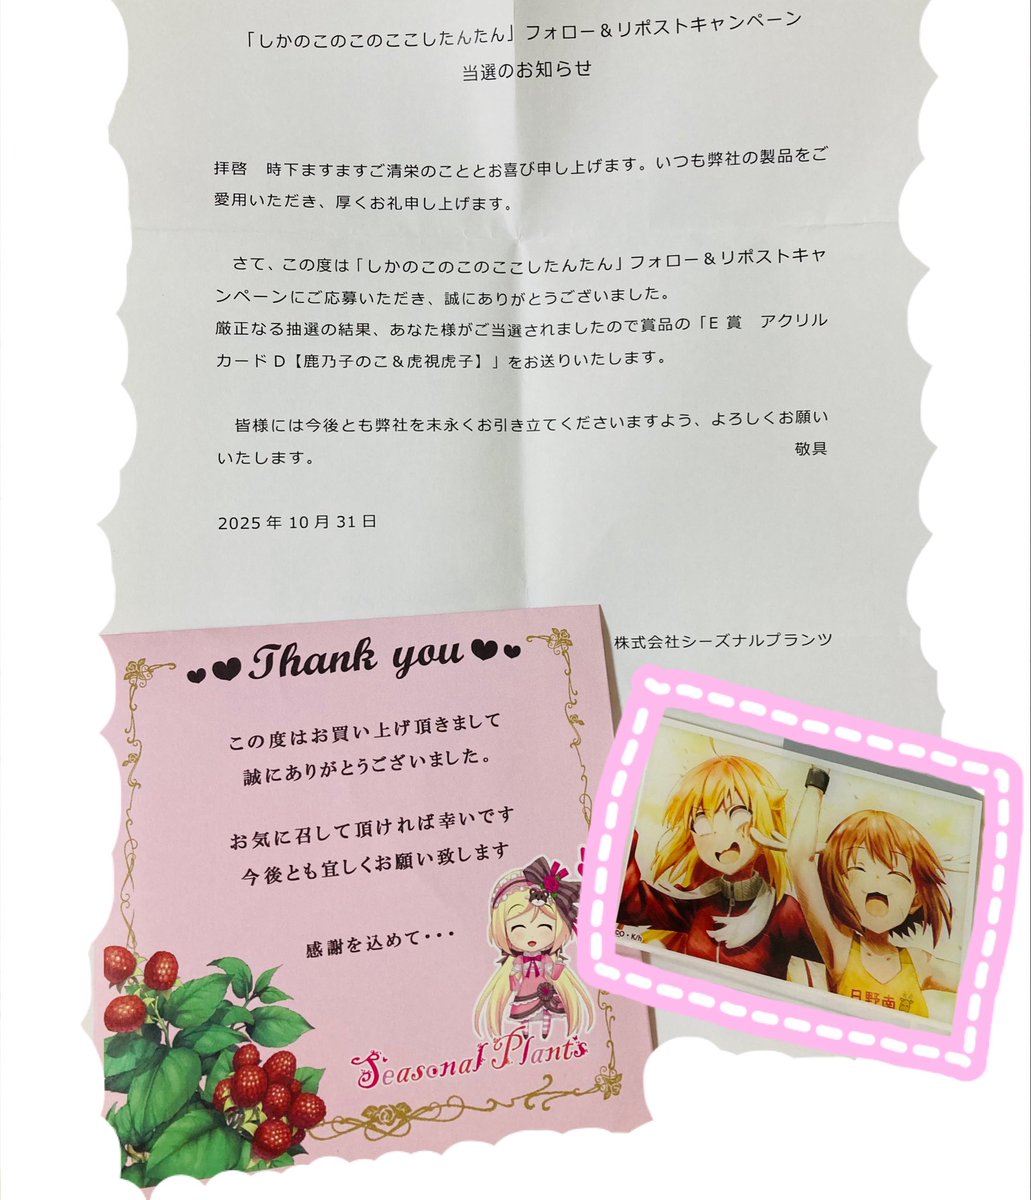 「しかのこのこのここしたんたん」フォロー＆リポストキャンペーン
当選のお知らせ
拝啓　時下ますますご清栄のこととお喜び申し上げます。いつも弊社の製品をご
愛用いただき、厚くお礼申し上げます。
さて、この度は「しかのこのこのここしたんたん」フォロー＆リポストキャ
ンペーンにご応募いただき、誠にありがとうございました。
厳正なる抽選の結果、あなた様がご当選されましたので賞品の「E 賞　アクリル
カード D【鹿乃子のこ＆虎視虎子】」をお送りいたします。
皆様には今後とも弊社を末永くお引き立てくださいますよう、よろしくお願い
いたします。
敬具
2025 年 10 月 31 日
株式会社シーズナルプランツ
Thank you
この度はお買い上げ頂きまして
誠にありがとうございました。
お気に召して頂ければ幸いです
今後とも宜しくお願い致します
感謝を込めて・・・
Seasonal Plants
日野南